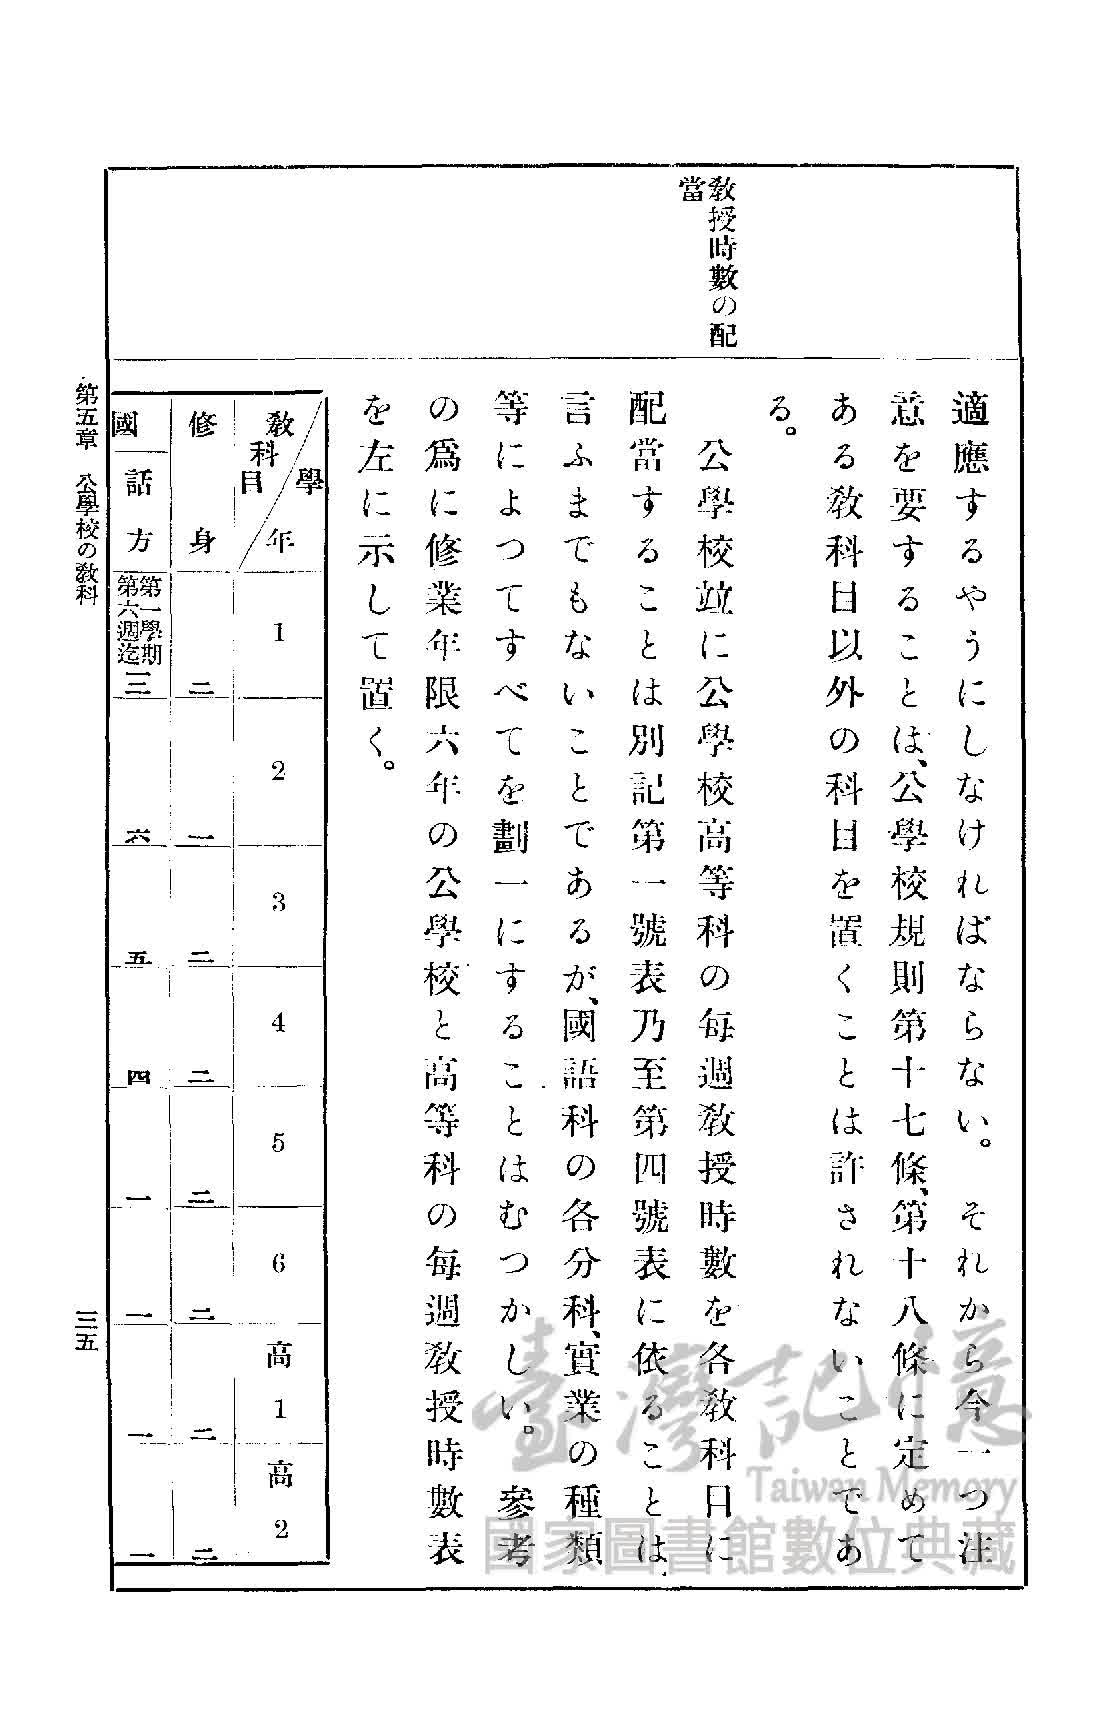 教授時數の配
當
適應するやうにしなければならない。それから今一つ注
意を要することは、公學校規則第十七條、第十八條に定めて
ある教科目以外の科目を置くことは許されないことであ
る。
公學校竝に公學校高等科の每週教授時數を各教科目に
配當することは別記第一號表乃至第四號表に依ることは
言ふまでもないことであるが、國語科の各分科、實業の種類
等によつてすべてを劃一にすることはむつかしい。參考
の爲に修業年限六年の公學校と高等科の每週教授時數表
を左に示して置く。
教科目 學年
1
2
3
4
5
6
高1
高2
修身
二
一
二
二
二
二
二
二
國
話方
第一學期
第六週迄
三
六
五
四
一
一
一
一
第五章 公學校の教科
三五
臺灣記憶
Taiwan Memory
國家圖書館數位典藏